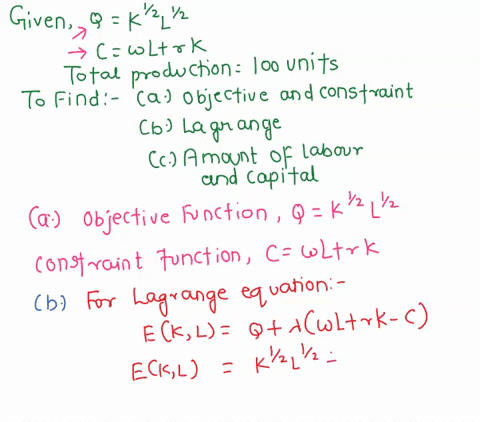 Given, Q = K^1/2 L^1/2
→ C = wL + rK
Total production: 100 units
To Find:- (a.) Objective and constraint
(b.) Lagrange
(c.) Amount of labour
and capital
(a.) Objective Function, Q = K^1/2 L^1/2
constraint Function, C = wL + rK
(b.) For Lagrange equation:-
E(K,L) = Q + λ(wL + rK - C)
E(K,L) = K^1/2 L^1/2 =